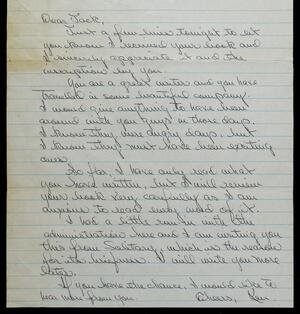 Dear Jack,
Just a few lines tonight to let
you know I received your book and
I sincerely appreciate it and the
inscription by you.
You are a great writer and you have
traveled in some beautiful company.
I would give anything to have been
around with you guys in those days.
I know they were angry days, but
I know they must have been exciting
ones.
So far, I have only read what
you have written, but I will review
your book very carefully as I am
anxious to read every word of it.
I had a little run in with the
administration here and I am writing you
this from Solitary, which is the reason
for its briefness. I will write you more
later.
If you have the chance, I would like to
hear more from you.
Cheers,